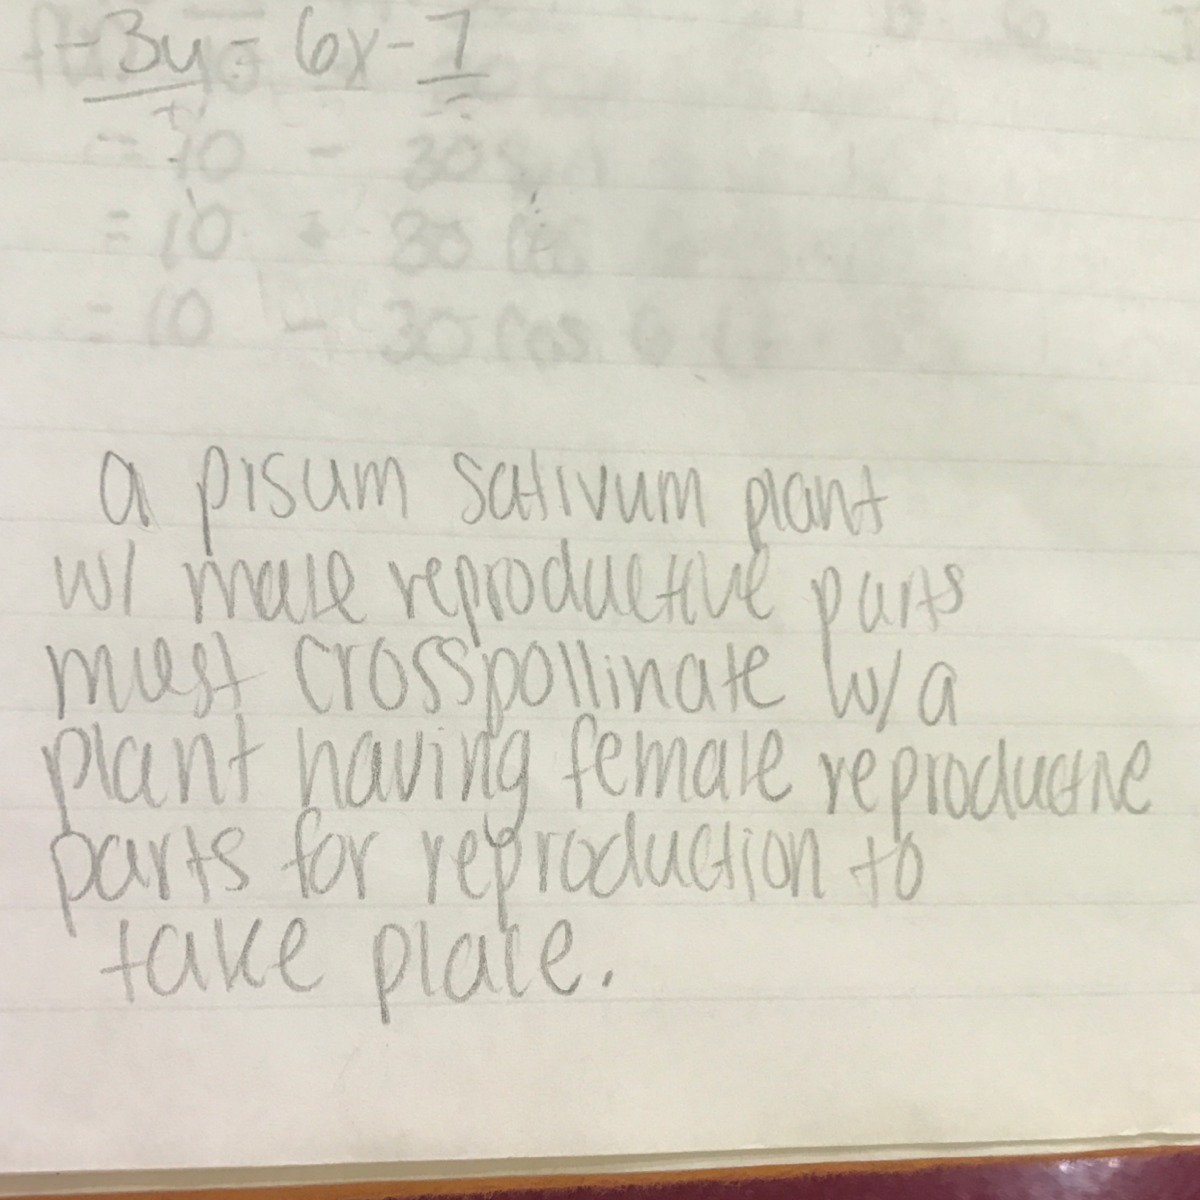 -3y = 6x - 7
= 10 - 30
= 10 + 30 cos
= 10 - 30 cos θ
a pisum sativum plant
w/ male reproductive parts
must crosspollinate w/ a
plant having female reproductive
parts for reproduction to
take place.